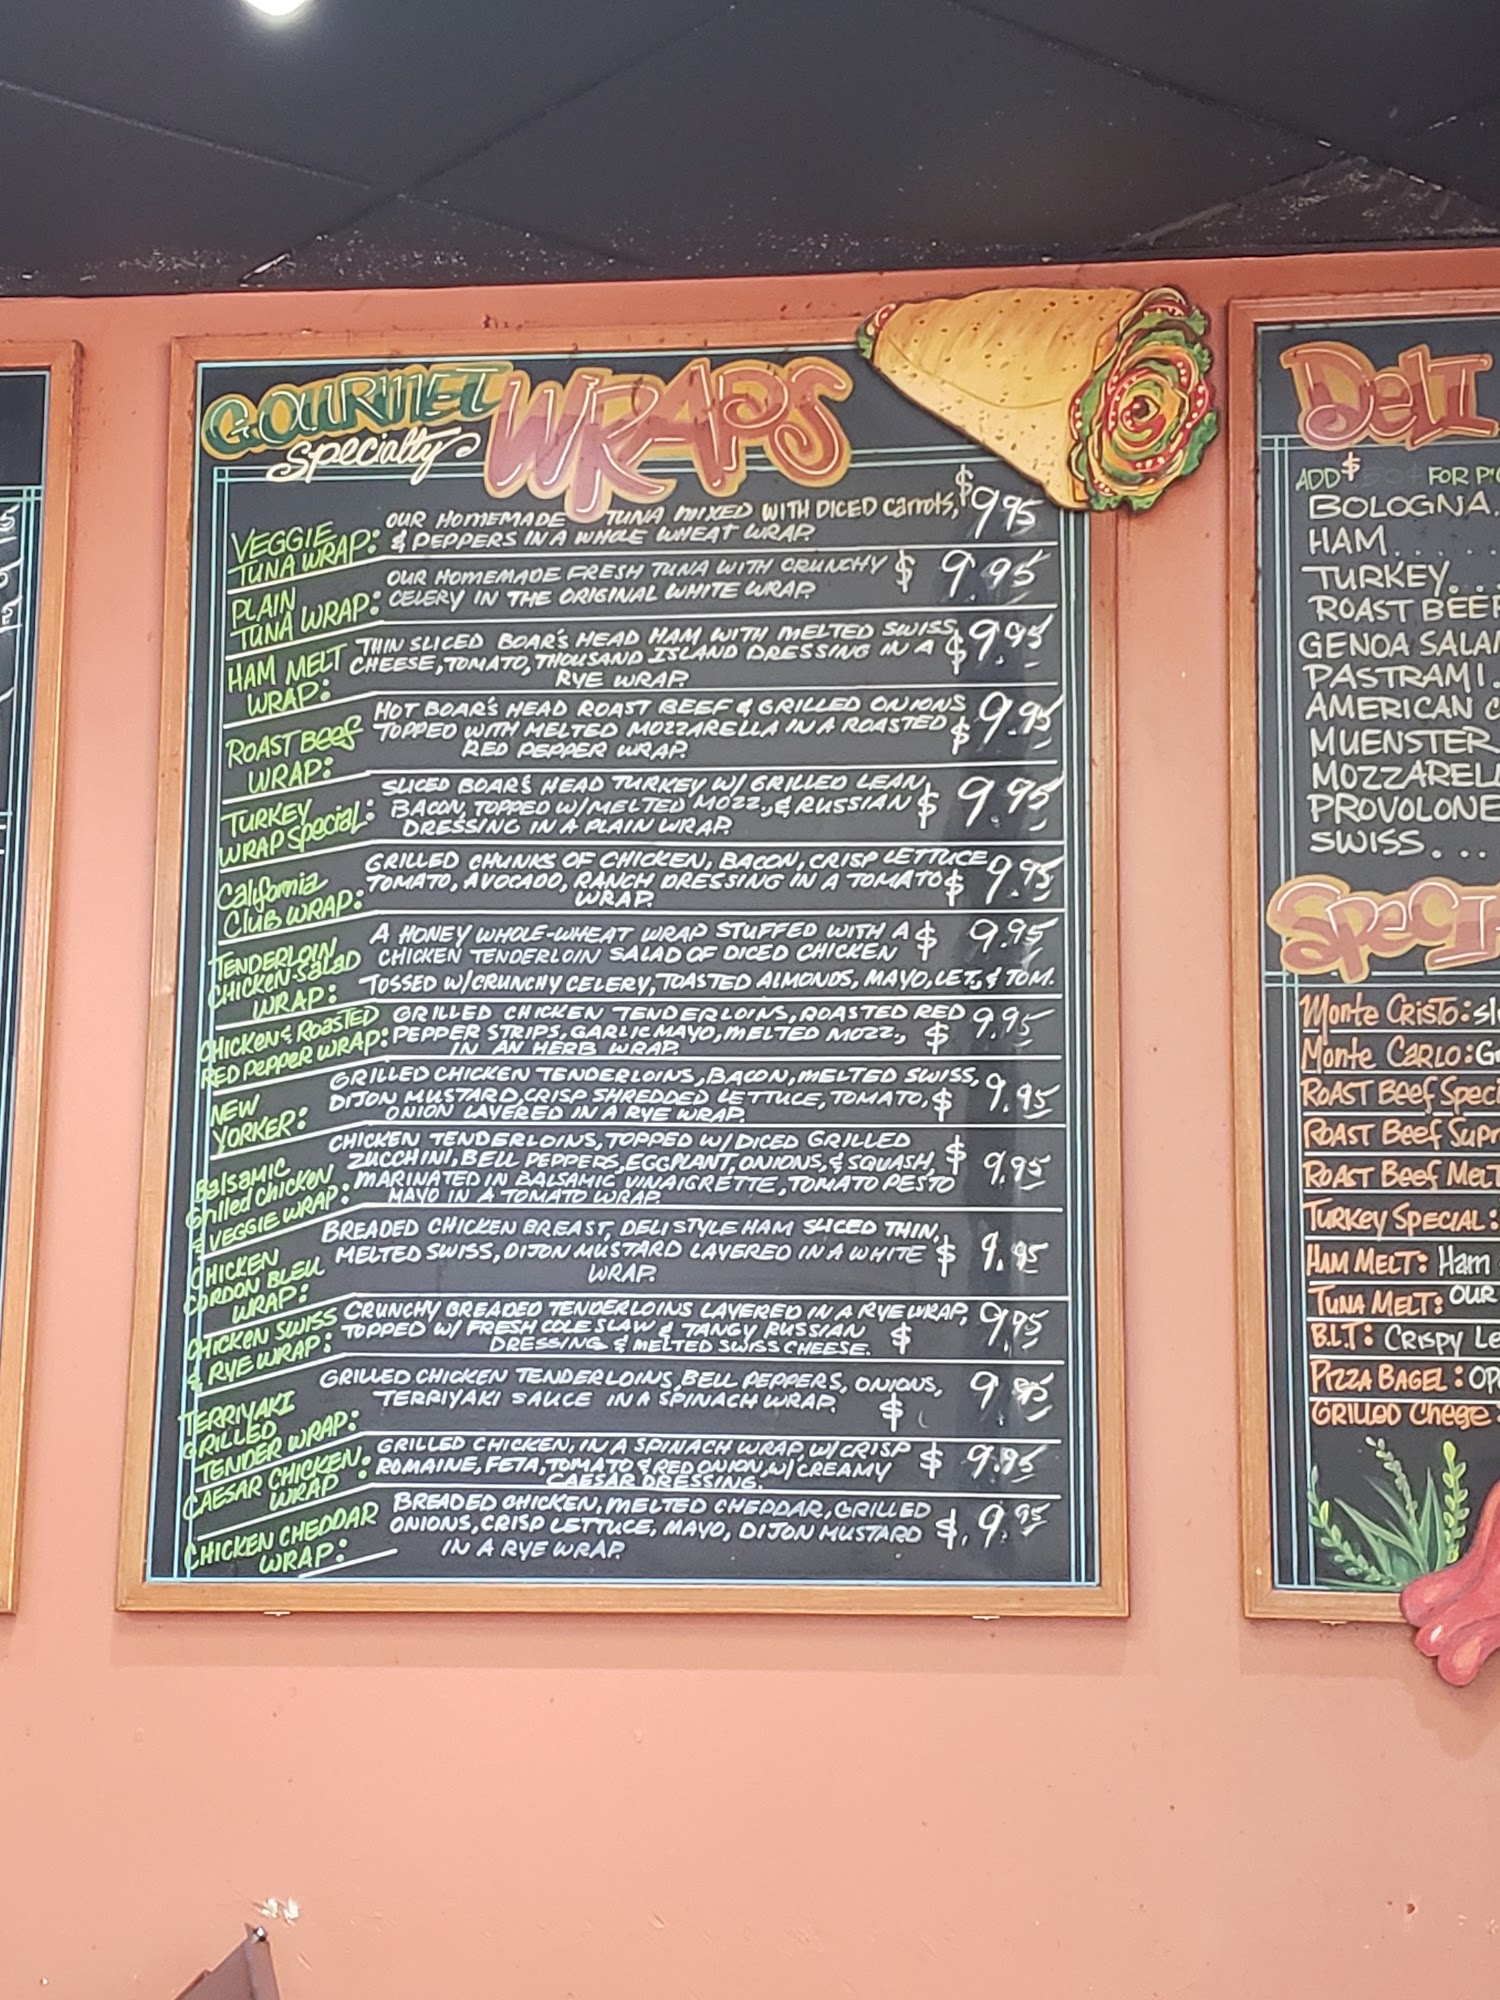 GOURMET
Specialty
WRAPS
VEGGIE
TUNA WRAP:
OUR HOMEMADE TUNA MIXED WITH DICED CARROTS,
& PEPPERS IN A WHOLE WHEAT WRAP.
$9.95
PLAIN
TUNA WRAP:
OUR HOMEMADE FRESH TUNA WITH CRUNCHY
CELERY IN THE ORIGINAL WHITE WRAP.
$ 9.95
HAM MELT
WRAP:
THIN SLICED BOAR'S HEAD HAM WITH MELTED SWISS
CHEESE, TOMATO, THOUSAND ISLAND DRESSING IN A
RYE WRAP.
$9.95
ROAST BEEF
WRAP:
HOT BOAR'S HEAD ROAST BEEF & GRILLED ONIONS
TOPPED WITH MELTED MOZZARELLA IN A ROASTED
RED PEPPER WRAP.
$9.95
TURKEY
WRAP SPECIAL:
SLICED BOAR'S HEAD TURKEY W/ GRILLED LEAN
BACON, TOPPED W/MELTED MOZZ., & RUSSIAN
DRESSING IN A PLAIN WRAP.
$ 9.95
California
CLUB WRAP:
GRILLED CHUNKS OF CHICKEN, BACON, CRISP LETTUCE
TOMATO, AVOCADO, RANCH DRESSING IN A TOMATO
WRAP.
$ 9.95
TENDERLOIN
CHICKEN-SALAD
WRAP:
A HONEY WHOLE-WHEAT WRAP STUFFED WITH A
CHICKEN TENDERLOIN SALAD OF DICED CHICKEN
TOSSED W/CRUNCHY CELERY, TOASTED ALMONDS, MAYO, LET, & TOM.
$ 9.95
CHICKEN & ROASTED
RED PEPPER WRAP:
GRILLED CHICKEN TENDERLOINS, ROASTED RED
PEPPER STRIPS, GARLIC MAYO, MELTED MOZZ.,
IN AN HERB WRAP.
$ 9.95
NEW
YORKER:
GRILLED CHICKEN TENDERLOINS, BACON, MELTED SWISS,
DIJON MUSTARD, CRISP SHREDDED LETTUCE, TOMATO,
ONION LAYERED IN A RYE WRAP.
$ 9.95
Balsamic
Grilled Chicken
& VEGGIE WRAP:
CHICKEN TENDERLOINS, TOPPED W/ DICED GRILLED
ZUCCHINI, BELL PEPPERS, EGGPLANT, ONIONS, & SQUASH,
MARINATED IN BALSAMIC VINAIGRETTE, TOMATO PESTO
MAYO IN A TOMATO WRAP.
$ 9.95
CHICKEN
CORDON BLEU
WRAP:
BREADED CHICKEN BREAST, DELI STYLE HAM SLICED THIN,
MELTED SWISS, DIJON MUSTARD LAYERED IN A WHITE
WRAP.
$ 9.95
CHICKEN SWISS
& RYE WRAP:
CRUNCHY BREADED TENDERLOINS LAYERED IN A RYE WRAP,
TOPPED W/ FRESH COLESLAW & TANGY RUSSIAN
DRESSING & MELTED SWISS CHEESE.
$ 9.95
TERRIYAKI
GRILLED
TENDER WRAP:
GRILLED CHICKEN TENDERLOINS, BELL PEPPERS, ONIONS,
TERRIYAKI SAUCE IN A SPINACH WRAP.
$ 9.95
CAESAR CHICKEN
WRAP:
GRILLED CHICKEN, IN A SPINACH WRAP, W/ CRISP
ROMAINE, FETA, TOMATO & RED ONION, W/ CREAMY
CAESAR DRESSING.
$ 9.95
CHICKEN CHEDDAR
WRAP:
BREADED CHICKEN, MELTED CHEDDAR, GRILLED
ONIONS, CRISP LETTUCE, MAYO, DIJON MUSTARD
IN A RYE WRAP.
$. 9.95
DELI
ADD $ FOR
BOLOGNA.
HAM......
TURKEY...
ROAST BEEF
GENOA
PASTRAMI.
AMERICAN
MUENSTER
MOZZARELLA
PROVOLONE
SWISS...
Monte Cristo:
Monte Carlo:
ROAST Beef
ROAST Beef
ROAST Beef MELT
TURKEY SPECIAL:
HAM MELT: Ham
TUNA MELT: OUR
B.L.T: CRISPY
PIZZA BAGEL:
GRILLED Cheese: